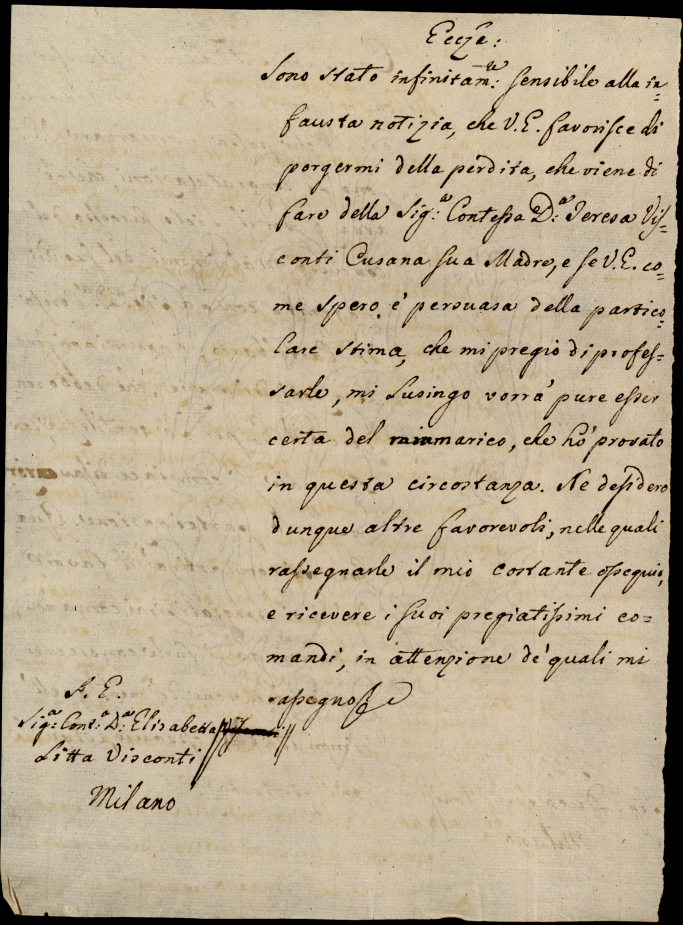 Eccza:
Sono stato infinitam.te sensibile alla in=
fausta notizia, che V.E. favorisce di
porgermi della perdita, che viene di
fare della Sig.a Contessa D.a Teresa Vis=
conti Cusana sua Madre, e se V.E. co=
me spero è persuasa della partico=
lare stima, che mi pregio di profes=
sarle, mi lusingo vorrà pure esser
certa del rammarico, che hò provato
in questa circostanza. Ne desidero
dunque altre favorevoli, nelle quali
rassegnarle il mio costante ossequio,
e ricevere i suoi pregiatissimi co=
mandi, in attenzione de' quali mi
rassegno
A. E.
Sig.a Cont.a D.a Elisabetta
Litta Visconti
Milano